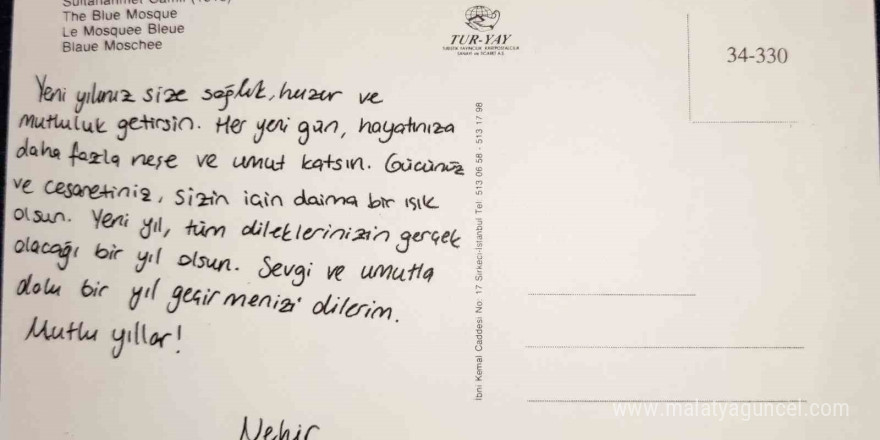 Sultanahmet Camii (1616)
The Blue Mosque
Le Mosquee Bleue
Blaue Moschee
TUR-YAY
TURİSTİK YAYINCILIK, KARTPOSTALCILIK
SANAYİ ve TİCARET A.Ş.
34-330
Yeni yılınız size sağlık, huzur ve
mutluluk getirsin. Her yeni gün, hayatınıza
daha fazla neşe ve umut katsın. Gücünüz
ve cesaretiniz, sizin için daima bir ışık
olsun. Yeni yıl, tüm dileklerinizin gerçek
olacağı bir yıl olsun. Sevgi ve umutla
dolu bir yıl geçirmenizi dilerim.
Mutlu yıllar!
Nehir
İbni Kemal Caddesi No: 17 Sirkeci-İstanbul Tel: 513 06 58 - 513 17 98
www.malatyaguncel.com